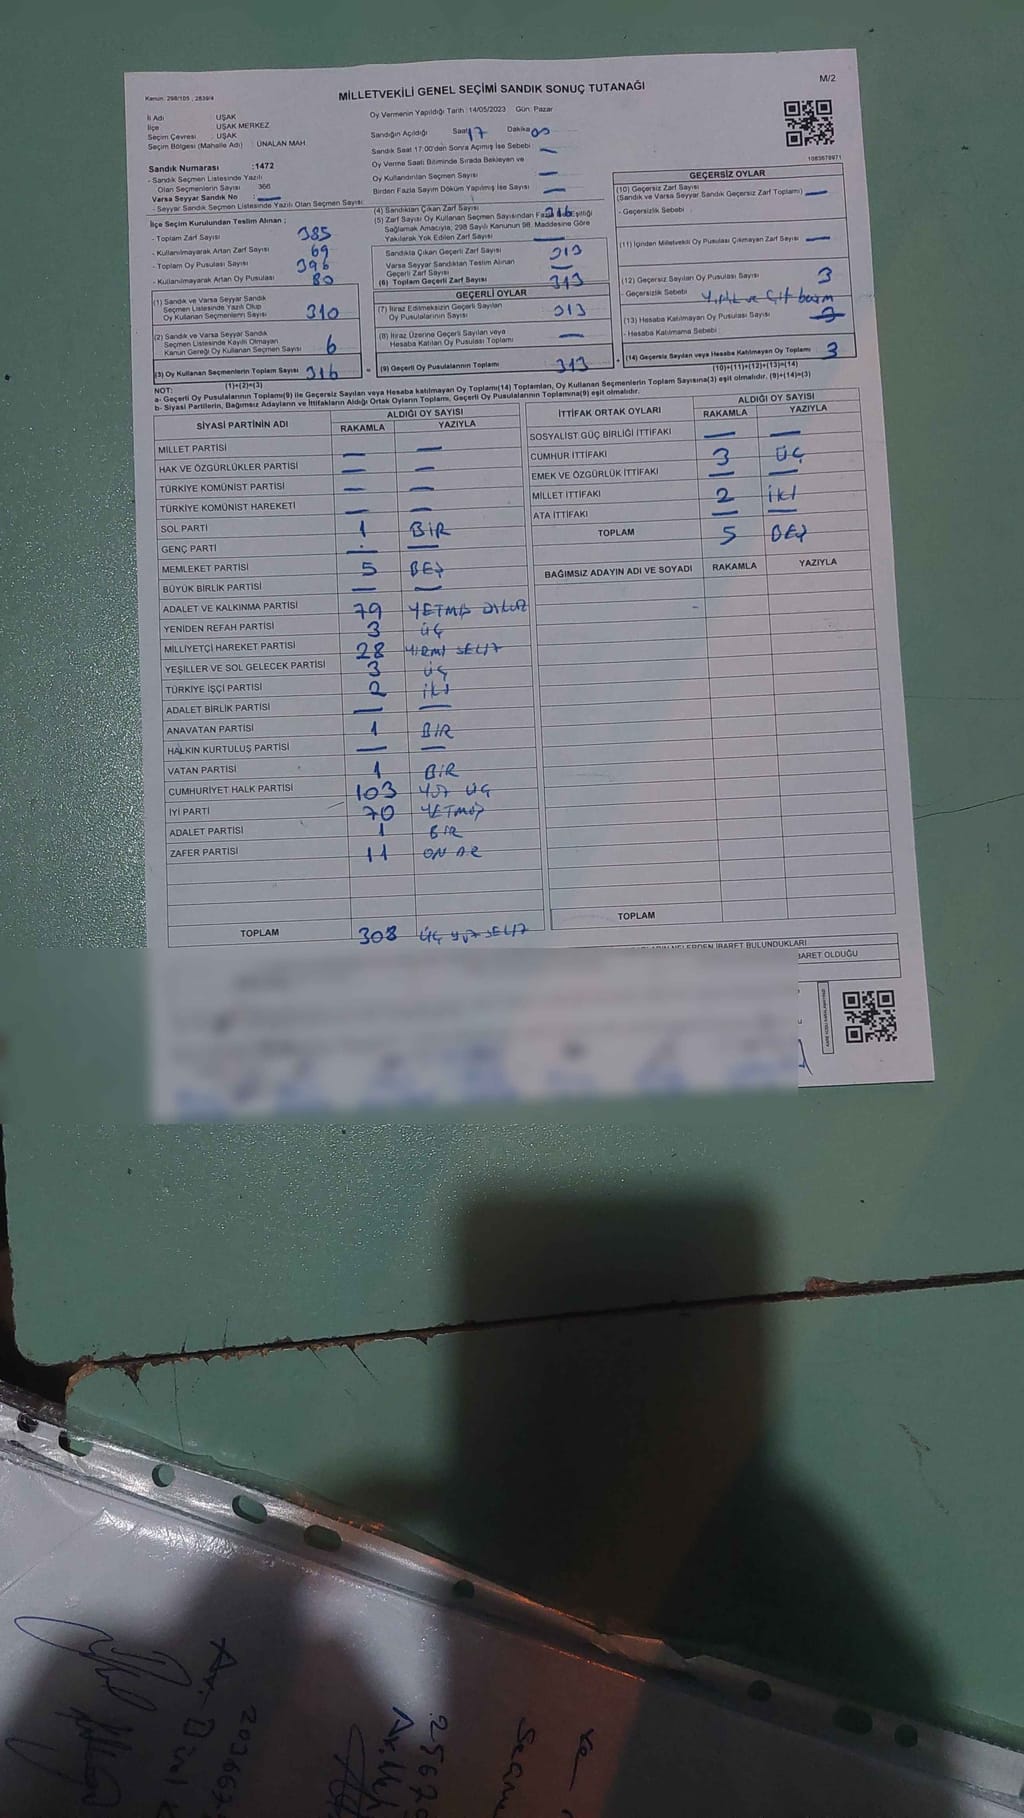 Kanun: 298/105 , 2839/4
MİLLETVEKİLİ GENEL SEÇİMİ SANDIK SONUÇ TUTANAĞI
M/2
İl Adı : UŞAK
İlçe : UŞAK MERKEZ
Seçim Çevresi : UŞAK
Seçim Bölgesi (Mahalle Adı) : ÜNALAN MAH.
Oy Vermenin Yapıldığı Tarih :14/05/2023 Gün: Pazar
Sandığın Açıldığı Saat 17 Dakika 00
Sandık Saat 17:00'den Sonra Açılmış İse Sebebi —
Oy Verme Saati Bitiminde Sırada Bekleyen ve
Oy Kullandırılan Seçmen Sayısı —
Birden Fazla Sayım Döküm Yapılmış İse Sayısı —
1083679971
Sandık Numarası : 1472
- Sandık Seçmen Listesinde Yazılı
Olan Seçmenlerin Sayısı 366
Varsa Seyyar Sandık No : —
- Seyyar Sandık Seçmen Listesinde Yazılı Olan Seçmen Sayısı:
İlçe Seçim Kurulundan Teslim Alınan ;
- Toplam Zarf Sayısı 385
- Kullanılmayarak Artan Zarf Sayısı 69
- Toplam Oy Pusulası Sayısı 396
- Kullanılmayarak Artan Oy Pusulası 80
(1) Sandık ve Varsa Seyyar Sandık
Seçmen Listesinde Yazılı Olup
Oy Kullanan Seçmenlerin Sayısı 310
(2) Sandık ve Varsa Seyyar Sandık
Seçmen Listesinde Kayıtlı Olmayan
Kanun Gereği Oy Kullanan Seçmen Sayısı 6
(3) Oy Kullanan Seçmenlerin Toplam Sayısı 316
(1)+(2)=(3)
(4) Sandıktan Çıkan Zarf Sayısı 316
(5) Zarf Sayısı Oy Kullanan Seçmen Sayısından Fazla İse Eşitliği
Sağlamak Amacıyla; 298 Sayılı Kanunun 98. Maddesine Göre
Yakılarak Yok Edilen Zarf Sayısı —
Sandıkta Çıkan Geçerli Zarf Sayısı 313
Varsa Seyyar Sandıktan Teslim Alınan
Geçerli Zarf Sayısı —
(6) Toplam Geçerli Zarf Sayısı 313
GEÇERLİ OYLAR
(7) İtiraz Edilmeksizin Geçerli Sayılan
Oy Pusulalarının Sayısı 313
(8) İtiraz Üzerine Geçerli Sayılan veya
Hesaba Katılan Oy Pusulası Toplamı —
= (9) Geçerli Oy Pusulalarının Toplamı 313 +
GEÇERSİZ OYLAR
(10) Geçersiz Zarf Sayısı
(Sandık ve Varsa Seyyar Sandık Geçersiz Zarf Toplamı) —
- Geçersizlik Sebebi
(11) İçinden Milletvekili Oy Pusulası Çıkmayan Zarf Sayısı —
(12) Geçersiz Sayılan Oy Pusulası Sayısı 3
- Geçersizlik Sebebi ve Çift basım
(13) Hesaba Katılmayan Oy Pusulası Sayısı
- Hesaba Katılmama Sebebi
(14) Geçersiz Sayılan veya Hesaba Katılmayan Oy Toplamı 3
(10)+(11)+(12)+(13)=(14)
NOT:
a- Geçerli Oy Pusulalarının Toplamı(9) ile Geçersiz Sayılan veya Hesaba katılmayan Oy Toplamı(14) Toplamları, Oy Kullanan Seçmenlerin Toplam Sayısına(3) eşit olmalıdır. (9)+(14)=(3)
b- Siyasi Partilerin, Bağımsız Adayların ve İttifakların Aldığı Ortak Oyların Toplamı, Geçerli Oy Pusulalarının Toplamına(9) eşit olmalıdır.
SİYASİ PARTİNİN ADI ALDIĞI OY SAYISI
RAKAMLA YAZIYLA
MİLLET PARTİSİ — —
HAK VE ÖZGÜRLÜKLER PARTİSİ — —
TÜRKİYE KOMÜNİST PARTİSİ — —
TÜRKİYE KOMÜNİST HAREKETİ — —
SOL PARTİ 1 BİR
GENÇ PARTİ — —
MEMLEKET PARTİSİ 5 BEŞ
BÜYÜK BİRLİK PARTİSİ — —
ADALET VE KALKINMA PARTİSİ 79 YETMİŞ DOKUZ
YENİDEN REFAH PARTİSİ 3 ÜÇ
MİLLİYETÇİ HAREKET PARTİSİ 28 YİRMİ SEKİZ
YEŞİLLER VE SOL GELECEK PARTİSİ 3 ÜÇ
TÜRKİYE İŞÇİ PARTİSİ 2 İKİ
ADALET BİRLİK PARTİSİ — —
ANAVATAN PARTİSİ 1 BİR
HALKIN KURTULUŞ PARTİSİ — —
VATAN PARTİSİ 1 BİR
CUMHURİYET HALK PARTİSİ 103 YÜZ ÜÇ
İYİ PARTİ 70 YETMİŞ
ADALET PARTİSİ 1 BİR
ZAFER PARTİSİ 11 ON BİR
TOPLAM 308 ÜÇ YÜZ SEKİZ
İTTİFAK ORTAK OYLARI ALDIĞI OY SAYISI
RAKAMLA YAZIYLA
SOSYALİST GÜÇ BİRLİĞİ İTTİFAKI — —
CUMHUR İTTİFAKI 3 ÜÇ
EMEK VE ÖZGÜRLÜK İTTİFAKI — —
MİLLET İTTİFAKI 2 İKİ
ATA İTTİFAKI — —
TOPLAM 5 BEŞ
BAĞIMSIZ ADAYIN ADI VE SOYADI RAKAMLA YAZIYLA
TOPLAM
NELERDEN İBARET BULUNDUKLARI
BARET OLDUĞU